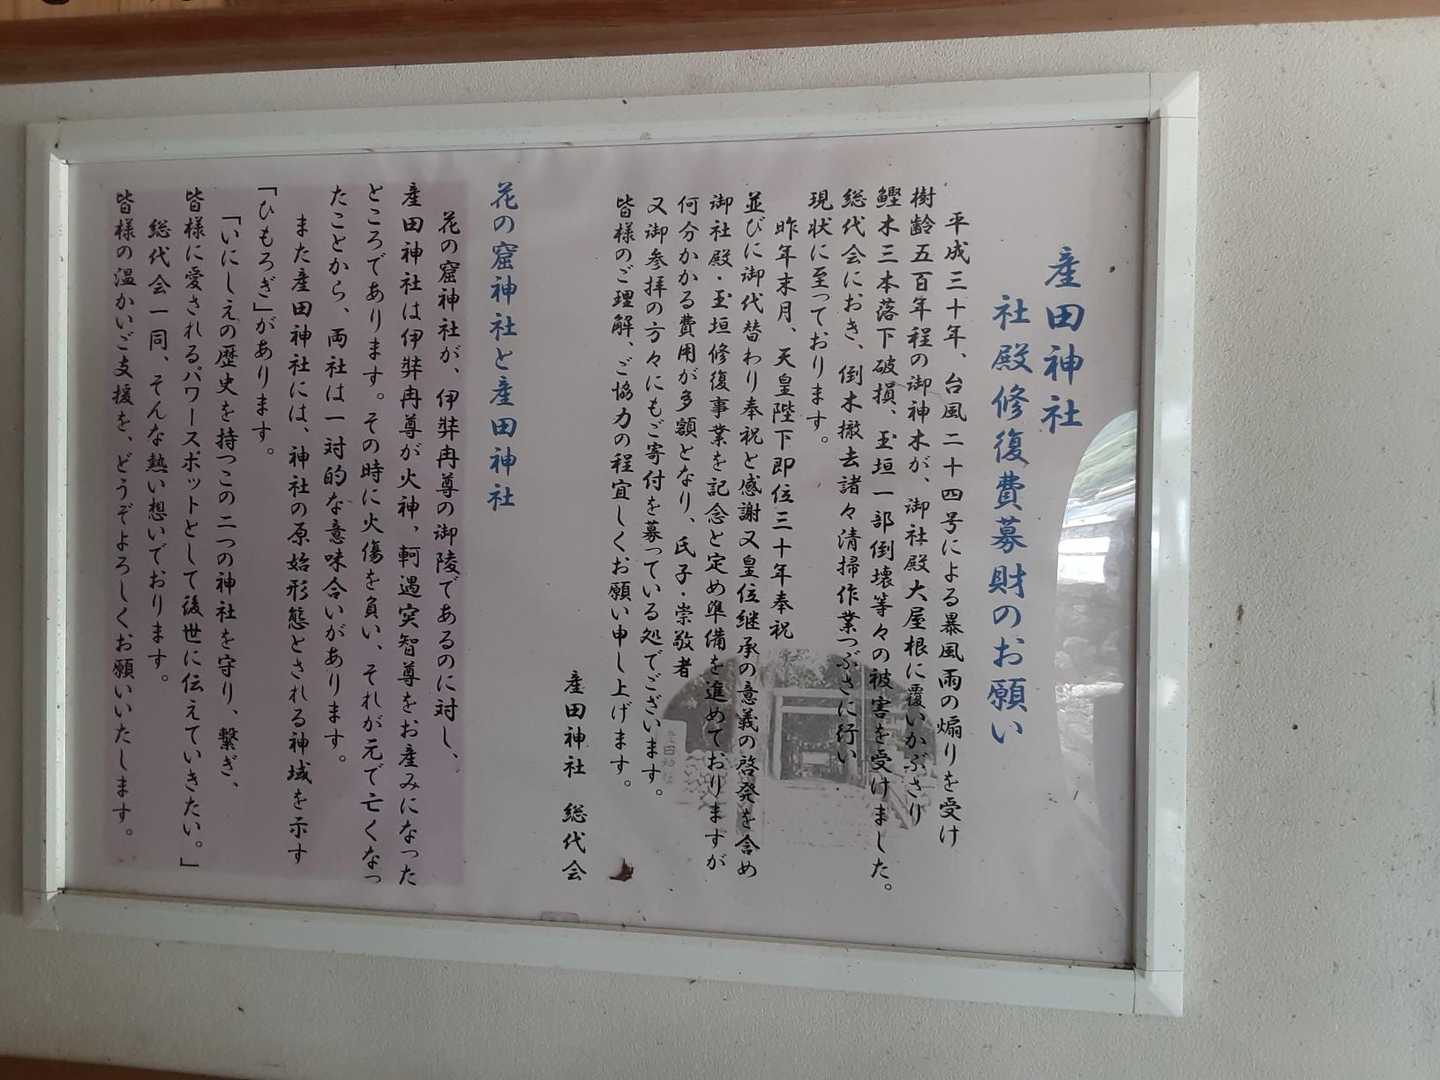 産田神社
社殿修復費募財のお願い
平成三十年、台風二十四号による暴風雨の煽りを受け
樹齢五百年程の御神木が、御社殿大屋根に覆いかぶさり
鰹木三本落下破損、玉垣一部倒壊等々の被害を受けました。
総代会におき、倒木撤去諸々清掃作業つぶさに行い
現状に至っております。
昨年末月、天皇陛下即位三十年奉祝
並びに御代替わり奉祝と感謝又皇位継承の意義の啓発を含め
御社殿・玉垣修復事業を記念と定め準備を進めておりますが
何分かかる費用が多額となり、氏子・崇敬者
又御参拝の方々にもご寄付を募っている処でございます。
皆様のご理解、ご協力の程宜しくお願い申し上げます。
産田神社 総代会
花の窟神社と産田神社
花の窟神社が、伊弉冉尊の御陵であるのに対し、
産田神社は伊弉冉尊が火神、軻遇突智尊をお産みになった
ところであります。その時に火傷を負い、それが元で亡くなっ
たことから、両社は一対的な意味合いがあります。
また産田神社には、神社の原始形態とされる神域を示す
「ひもろぎ」があります。
「いにしえの歴史を持つこの二つの神社を守り、繋ぎ、
皆様に愛されるパワースポットとして後世に伝えていきたい。」
総代会一同、そんな熱い想いでおります。
皆様の温かいご支援を、どうぞよろしくお願いいたします。